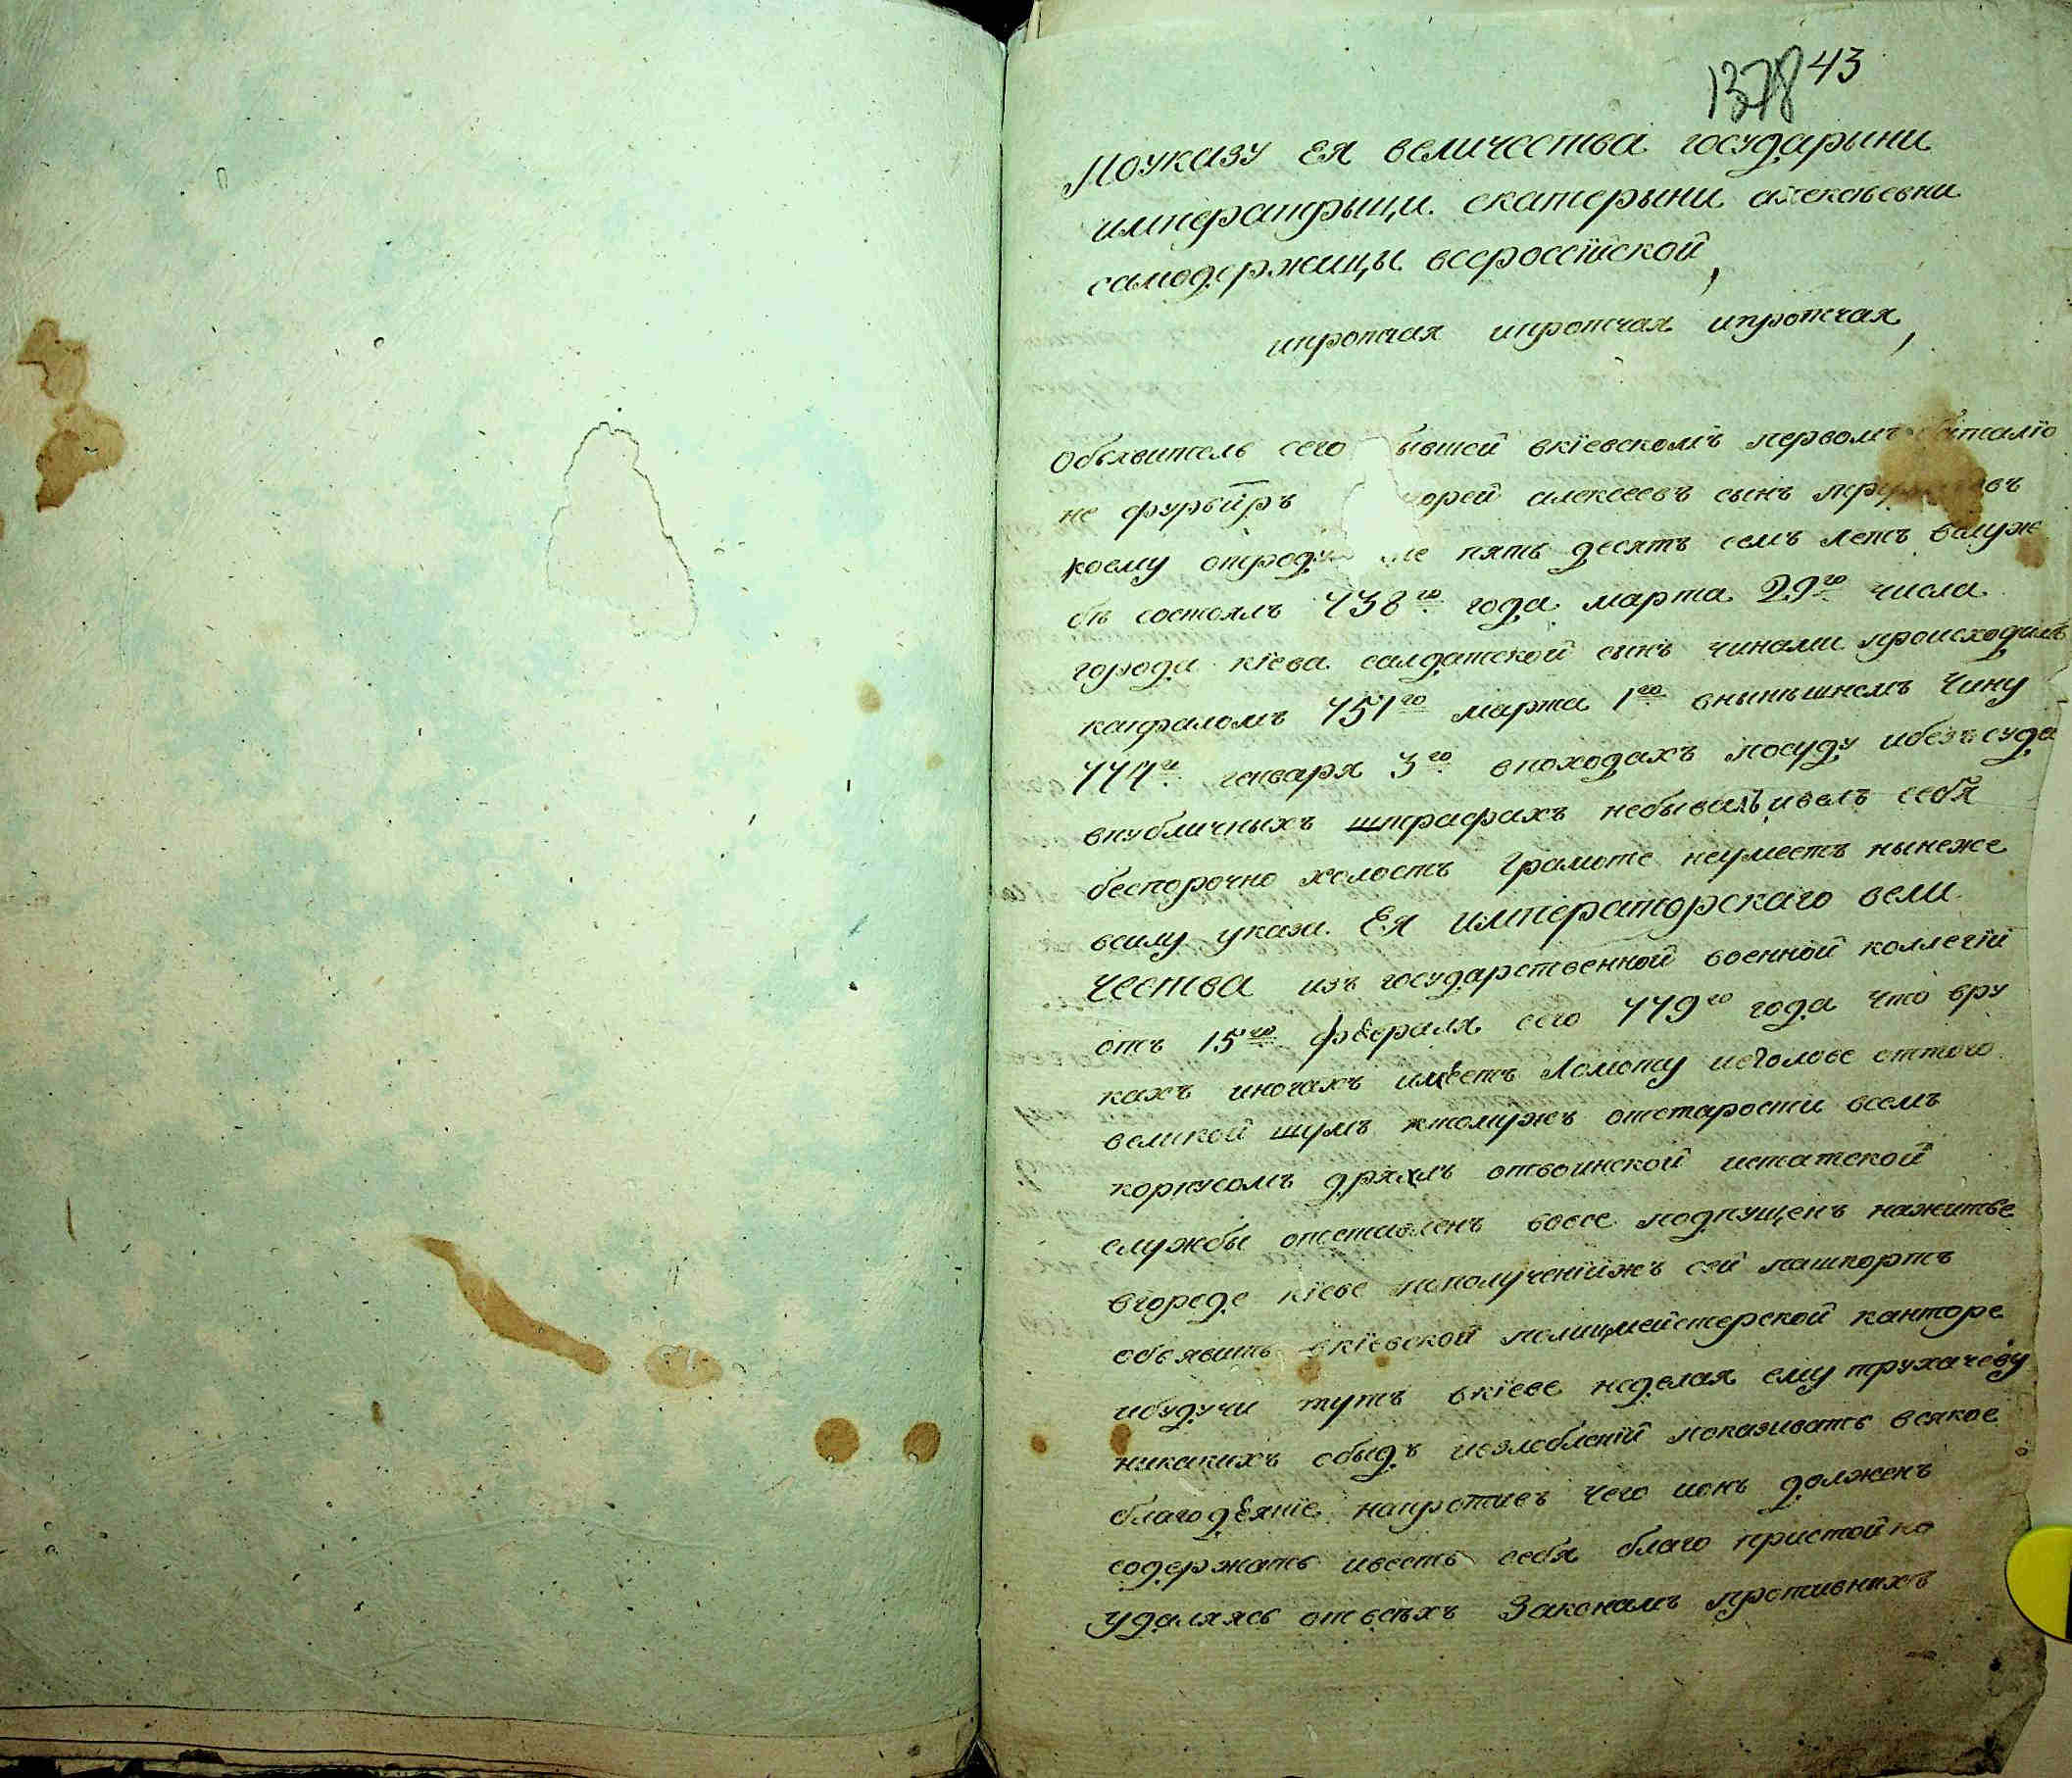 1378 43
Поуказу ея величества государыни
императрыци екатерыни алексѣевни
самодержицы всеросссійской,
ипротчая ипротчая ипротчая,
Объявитель сего бывшей вкіевскомъ первомъ баталіо
не фурьиръ алексеевъ сынъ
коему отроду пять десятъ семъ летъ вслуж
бѣ состоялъ 738го года марта 29го числа
города кіева салдатской сынъ чинами происходилъ
капраломъ 751го марта 1го внынѣшнемъ чину
774г генваря 3го впоходахъ посуду ибезъ суда
впубличныхъ штрафахъ небывалъ ивелъ себя
беспорочно холостъ грамоте неумеетъ нынеже
всилу указа Ея императорскаго вели
чества изъ государственной военной коллегіи
отъ 15го февраля сего 779го года что вру
кахъ иногахъ имѣетъ ломоту иеголове оттого
великой шумъ ктомужъ отстарости всемъ
корпусомъ дряхлъ отвоинской истатской
службы отставленъ вовсе подпущенъ нажитье
вгороде кіеве пополученіижъ сей пашпортъ
объявить вкіевской полицмейстерской канторе
ибудучи тутъ вкіеве неделая ему трухачеву
никакихъ обыдъ иозлобленій показивать всякое
благодѣяніе напротивъ чего ионъ долженъ
содержать ивесть себя благо пристойно
удаляясь отвсѣхъ Законамъ противнихъ